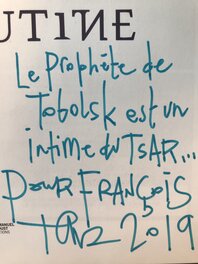 UTINE
Le Prophète de
Tobolsk est un
intime du TSAR...
Pour FRANÇOIS
2019